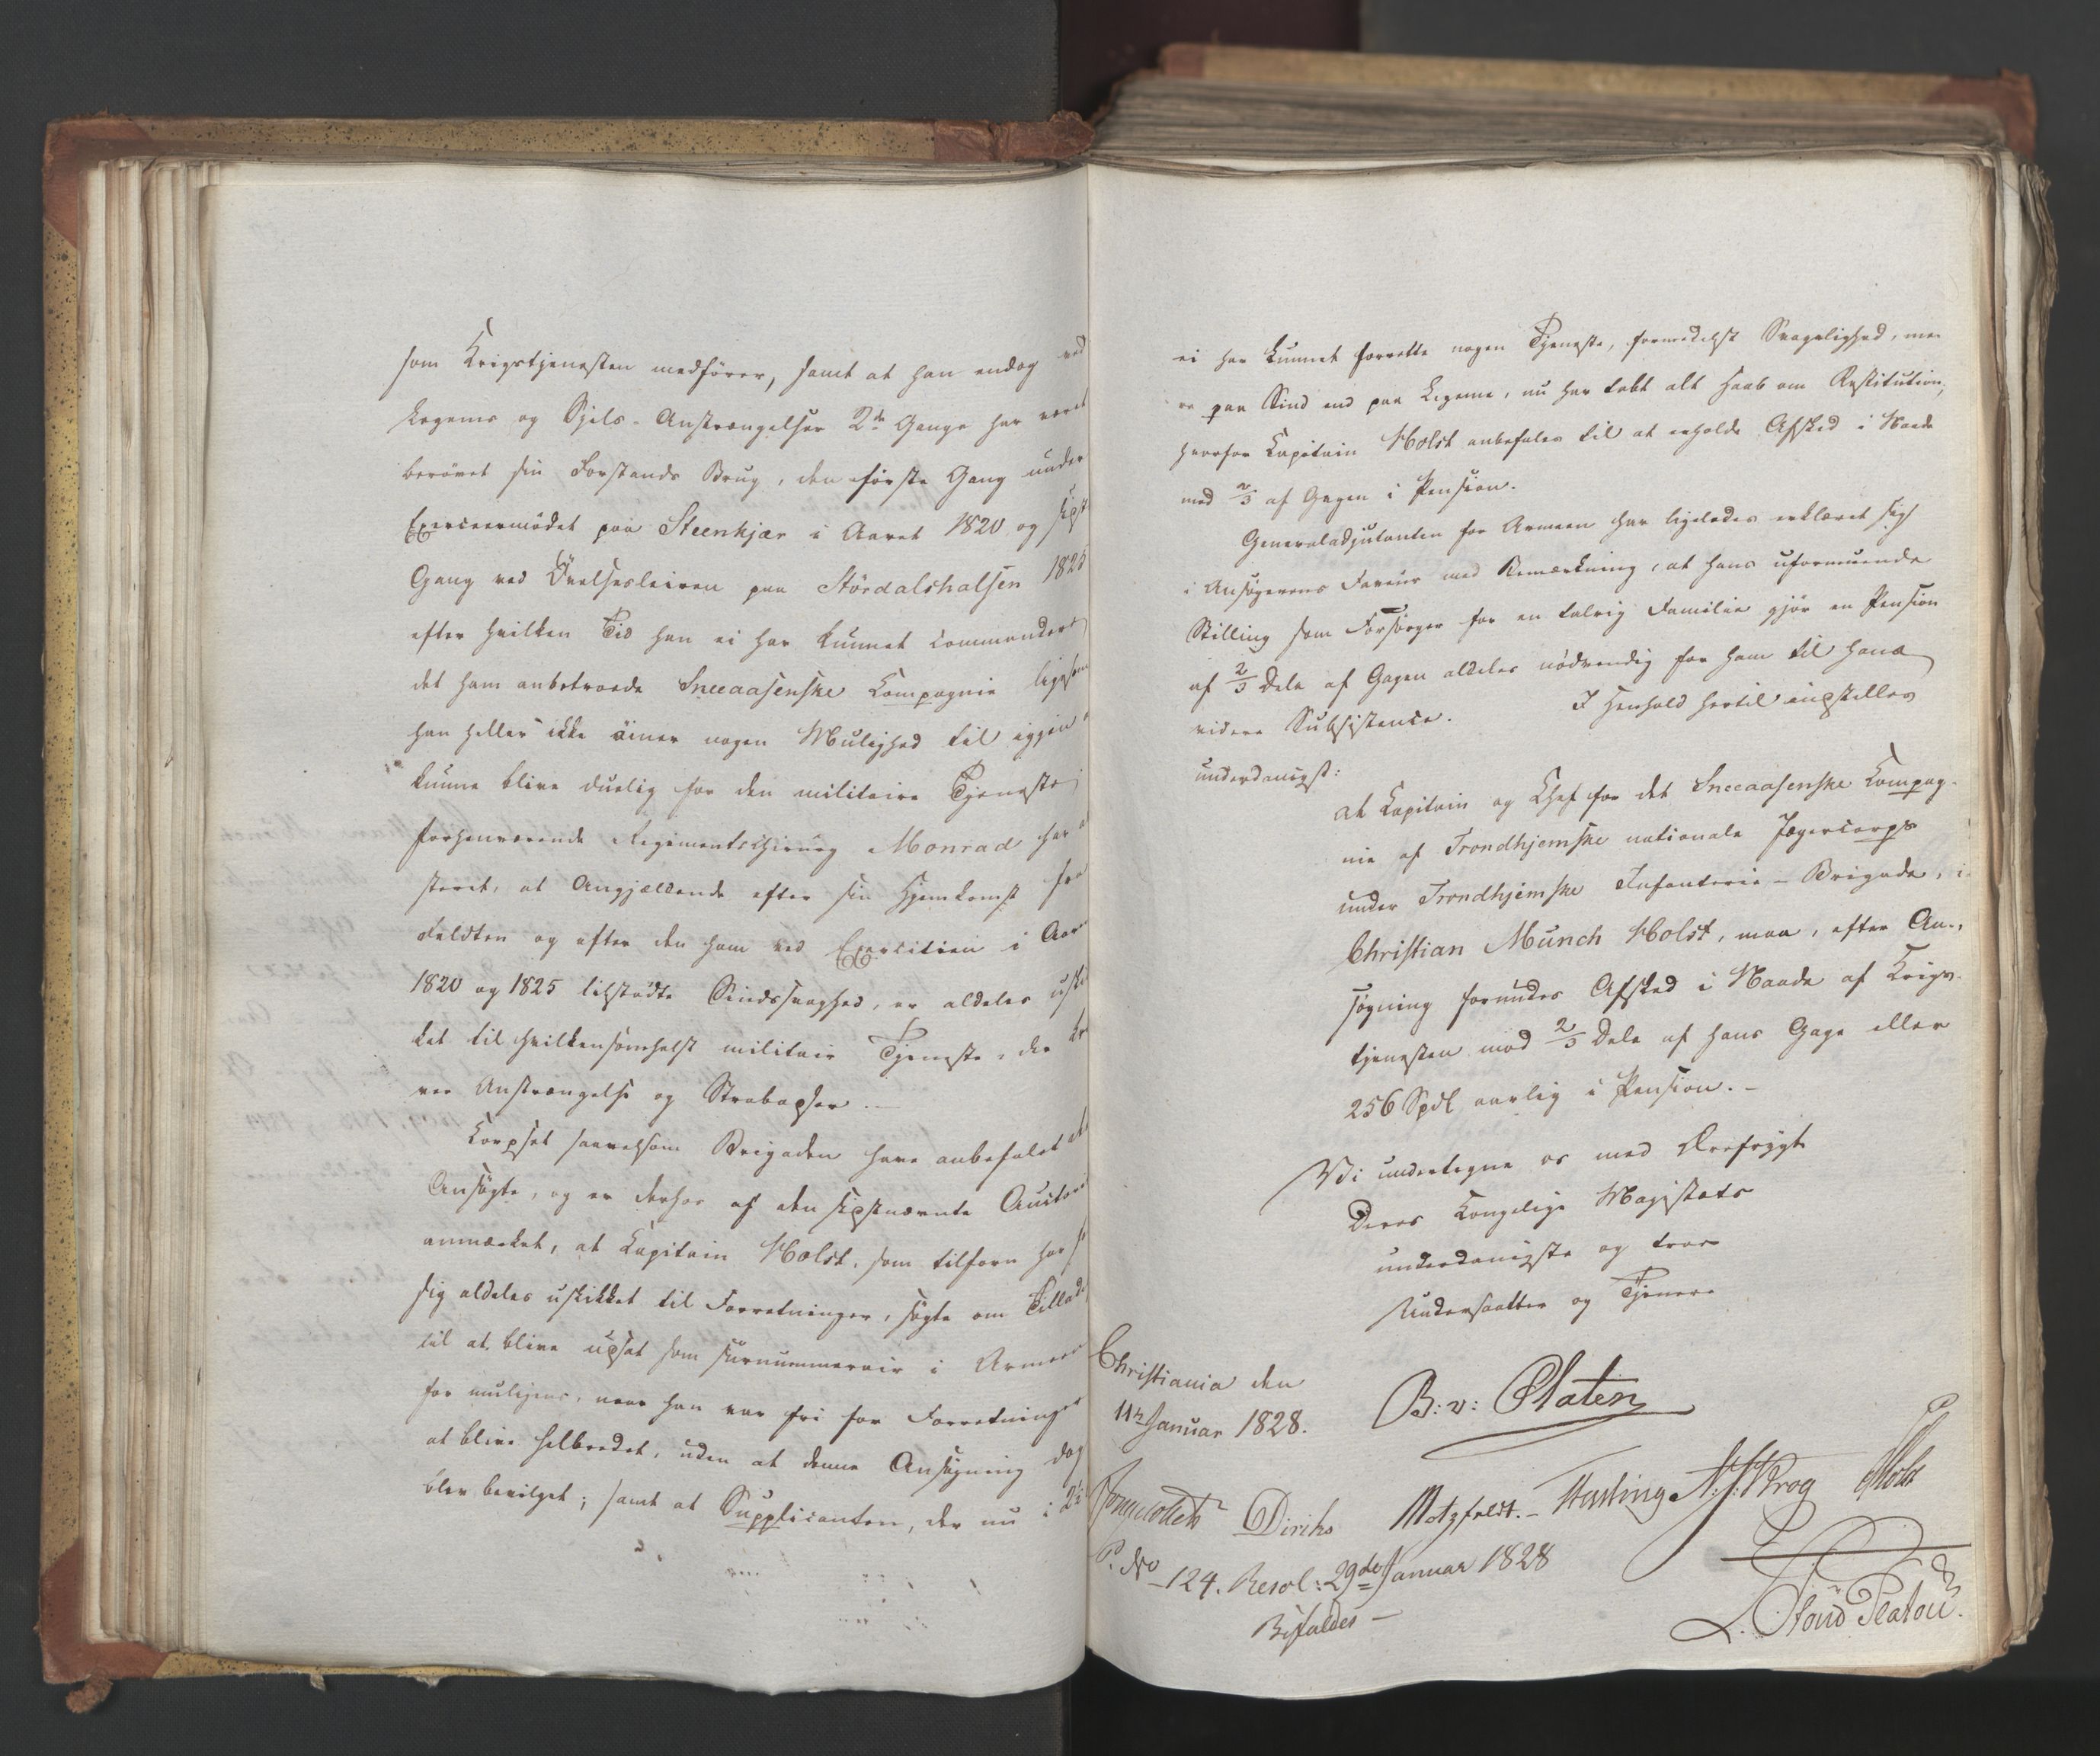 som Krigstjenesten medfører, samt at han endog ved
Legems og Sjels-Anstrængelser 2de Gange har været
berøvet sin Forstands Brug, den første Gang under
Exerceermødet paa Steenkjær i Aaret 1820 og sidst
Gang ved Øvelsesleiren paa Stördalshalsen 1825
efter hvilken Tid han ei har kunnet commandere
det ham anbetroede Sneeaasenske Compagnie ligesom
han heller ikke øiner nogen Mulighed til igjen
kunne blive duelig for den militaire Tjeneste;
forhenværende Regimentschirurg Monrad har
steret, at Angjældende efter sin Hjemkomst fra
Feldten og efter den ham ved Exercitien i Aar
1820 og 1825 tilstødte Sindssvaghed, er aldeles uski
ket til hvilkensomhelst militair Tjeneste, der kr
ver Anstrængelse og Strabadser.
Corpset saavelsom Brigaden have anbefalet
Ansøgte, og er derhos af den sidstnævnte Autori
anmærket, at Capitain Holst, som tilforn har
sig aldeles uskikket til Forretninger, søgte om Tillad
til at blive udsat som surnummerair i Armeen
for muligens, naar han var fri for Forretninger
at blive helbredet, uden at denne Ansøgning dog
blev bevilget; samt at Supplicanten, der nu i 2½
ei har kunnet forrette nogen Tjeneste, formedelst Svagelighed, me
re paa Sind end paa Legeme, nu har tabt alt Haab om Restitution,
hvorfor Capitain Holst anbefales til at erholde Afsked i Naade
med 2/3 af Gagen i Pension.
Generaladjutanten for Armeen har ligeledes erklæret sig
i Ansøgerens Faveur med Bemærkning, at hans uformuende
Stilling som Forsørger for en talrig Familie gjør en Pension
af 2/3 Dele af Gagen aldeles nødvendig for ham til hans
videre Subsistence. I Henhold hertil indstilles
underdanigst:
at Capitain og Chef for det Sneeaasenske Compag-
nie af Trondhjemske nationale Jægercorps
under Trondhjemske Infanterie-Brigade,
Christian Münch Holst, maa, efter An-
søgning forundes Afsked i Naade af Krigs-
tjenesten med 2/3 Dele af hans Gage eller
256 Spdl aarlig i Pension. -
Vi undertegne os med Ærefrygt
Deres Kongelige Majestæts
underdanigste og troe
Undersaatter og Tjenere
Christiania den
11te Januar 1828.
B: v: Platen
Diriks Motzfeldt. - N. J. Krog Holst
P. No 124. Resol: 29de Januar 1828
Bifaldes -
L. Stoud Platou.